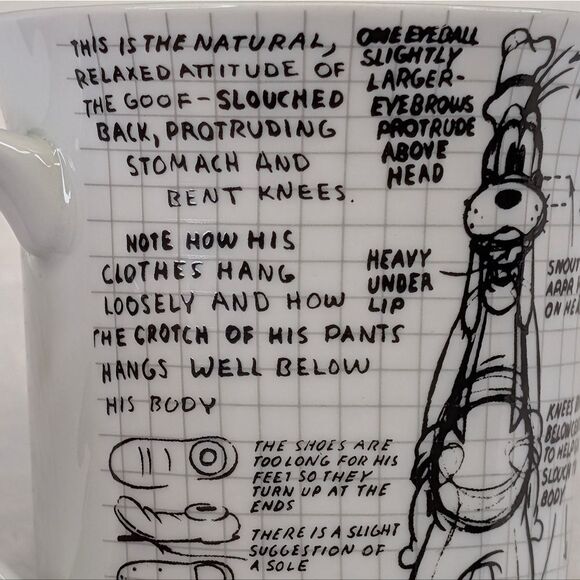 THIS IS THE NATURAL,
RELAXED ATTITUDE OF
THE GOOF - SLOUCHED
BACK, PROTRUDING
STOMACH AND
BENT KNEES.
NOTE HOW HIS
CLOTHES HANG
LOOSELY AND HOW
THE CROTCH OF HIS PANTS
HANGS WELL BELOW
HIS BODY
ONE EYEBALL
SLIGHTLY
LARGER-
EYEBROWS
PROTRUDE
ABOVE
HEAD
HEAVY
UNDER
LIP
THE SHOES ARE
TOO LONG FOR HIS
FEET SO THEY
TURN UP AT THE
ENDS
THERE IS A SLIGHT
SUGGESTION OF
A SOLE
SNOUT
ON
KNEES
BELOW
TO
SLOUCH
BODY